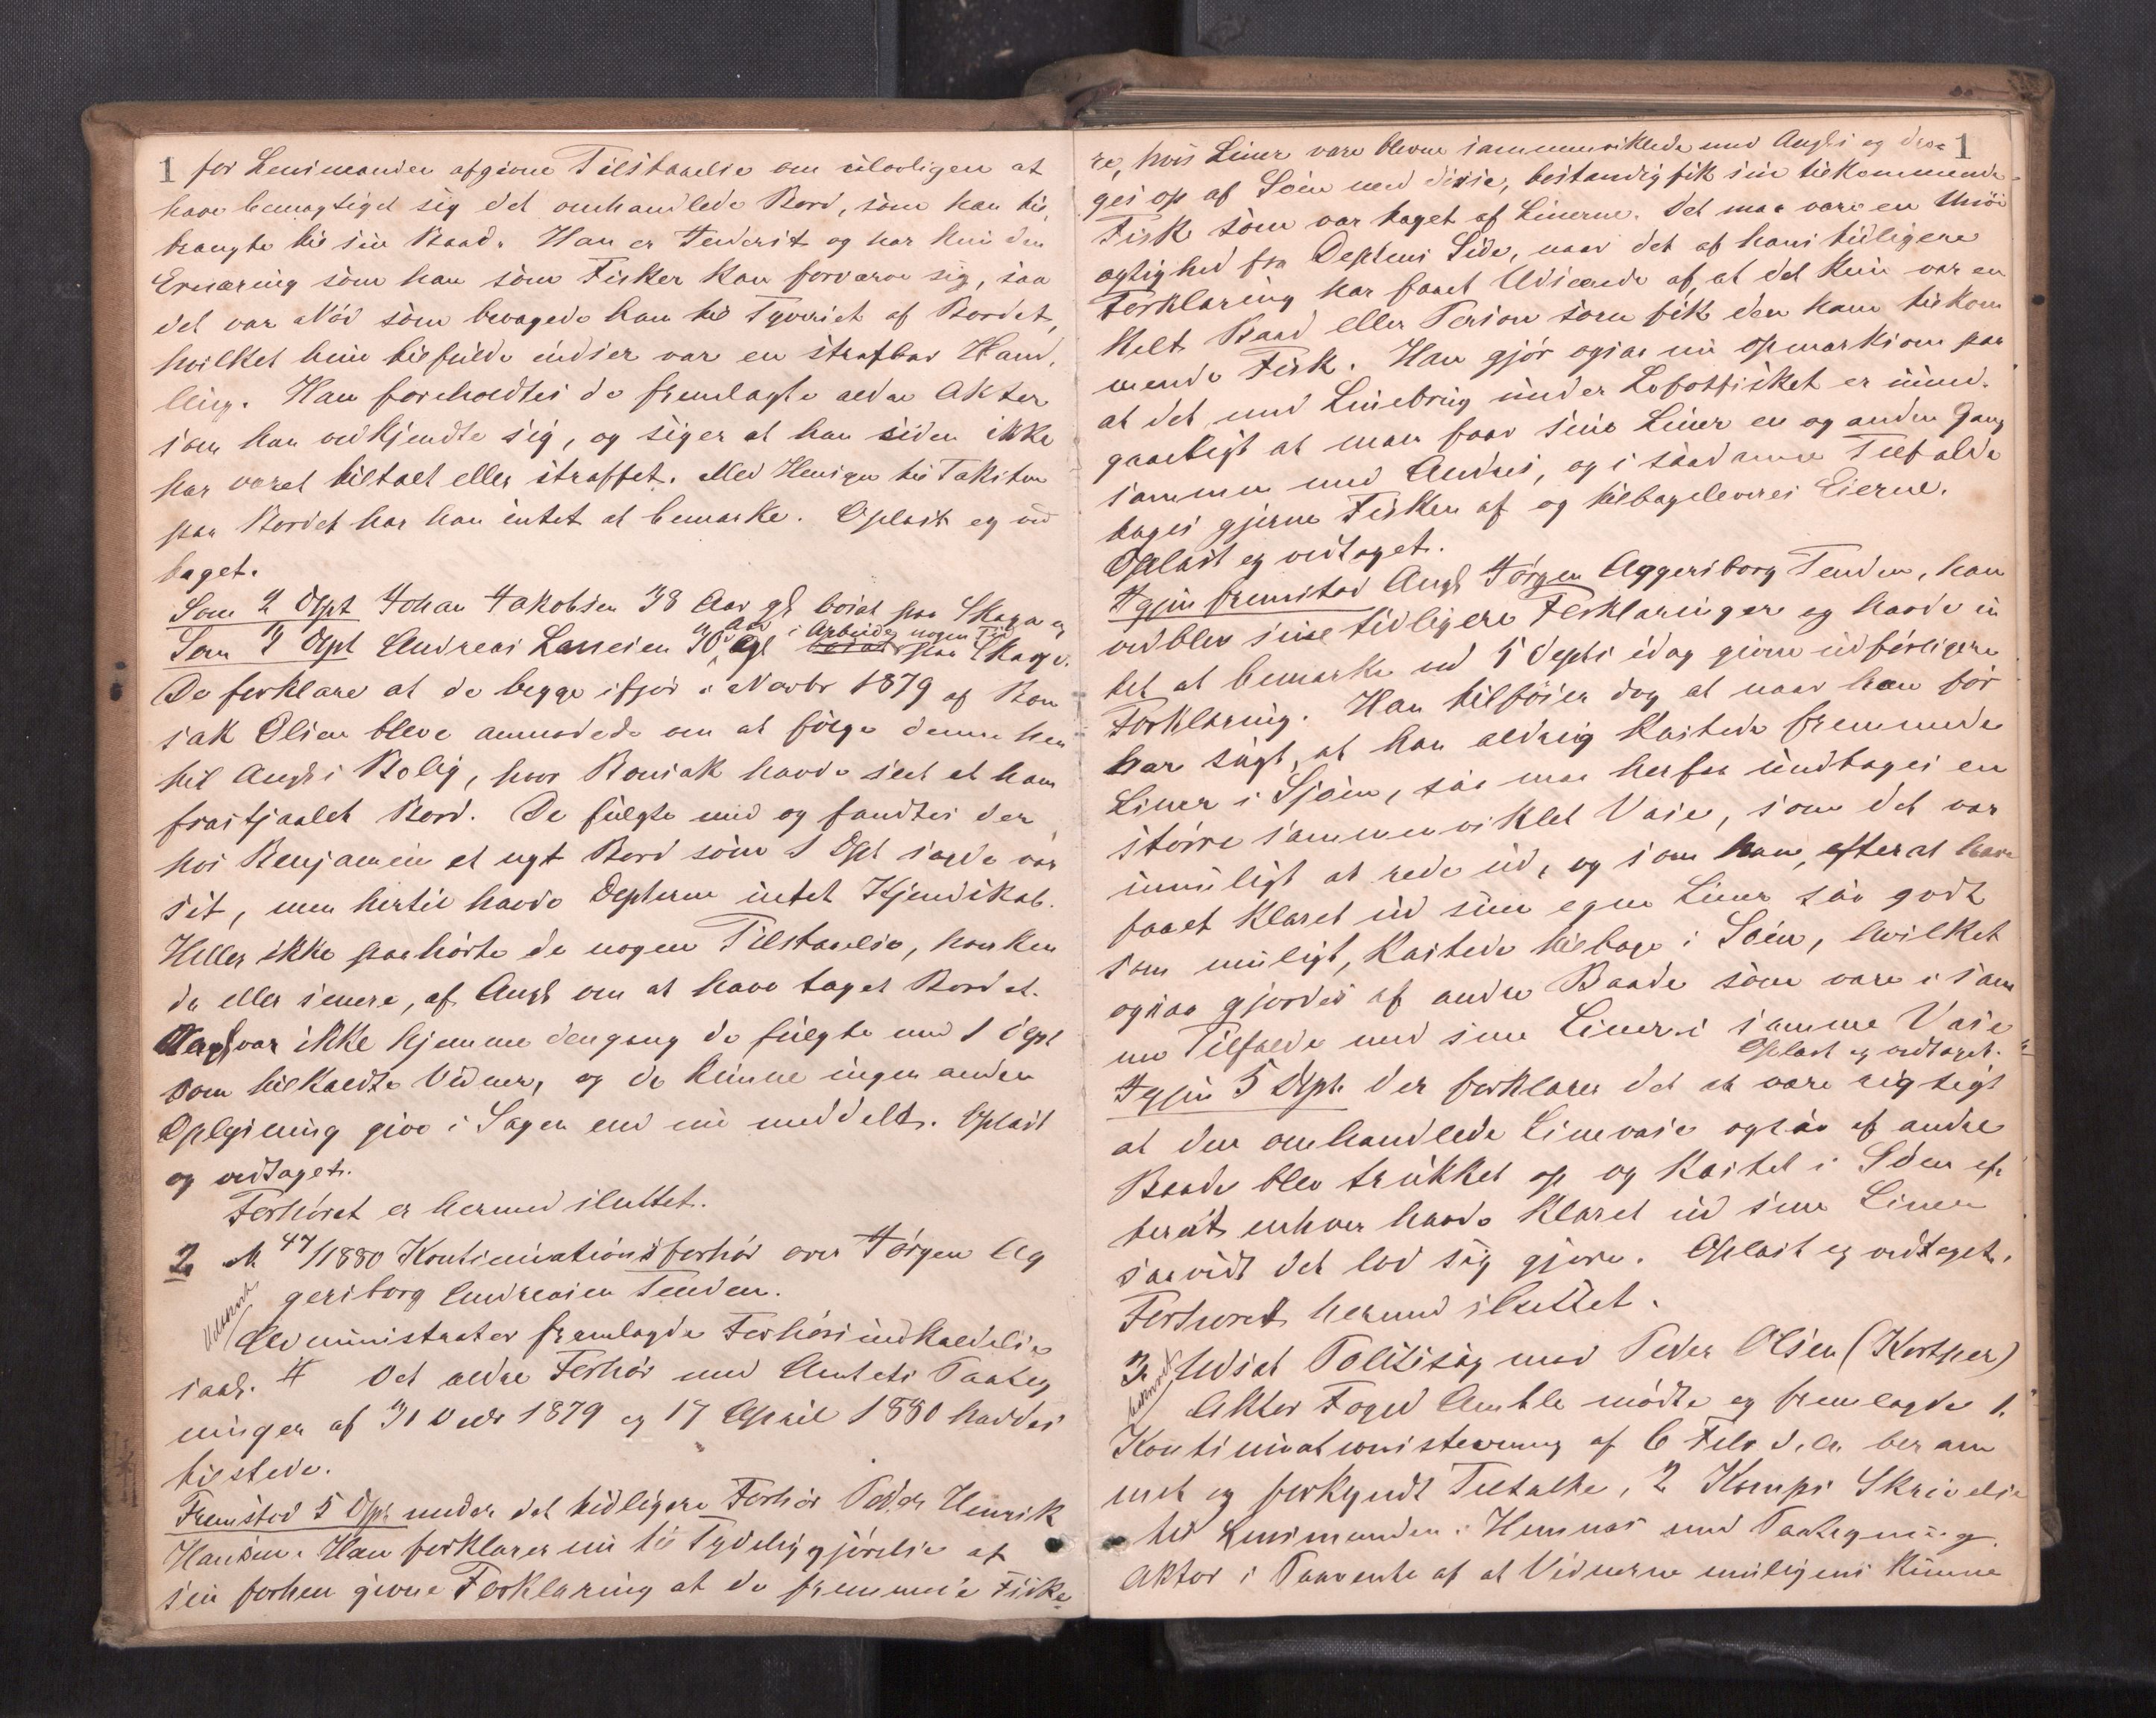 1
for Lensmanden afgivne Tilstaaelse om ulovligen at
have bemægtiget sig det omhandlede Bord, som han til,
bragte til sin Baad. Han er Inderst og har kun den
Ernæring som han som Fisker kan forværve sig, saa
det var Nød som bevægede ham til Tyveriet af Bordet,
hvilket han tilfulde indser var en strafbar Hand,
ling. Han foreholdtes de fremlagte ældre Akter
som han vedkjendte sig, og siger at han siden ikke
har været tiltalt eller straffet. Med Hensyn til Taksten
paa Bordet har han intet at bemærke. Oplæst og ved
taget.
Som 2 Dpt Johan Jakobsen 38 Aar gl bosat paa Skaga og
Som 3 Dpt Andreas Larsen 30 Aar gl i Arbeide nogen Tid paa Skaga.
De forklare at de begge ifjor i Novbr 1879 af Bon
sak Olsen bleve anmodede om at følge denne hen
til Angks Bolig, hvor Bonsak havde seet et ham
frastjaalet Bord. De fulgte med og fandtes der
hos Benjamin et nyt Bord som 1 Dpt sagde var
sit, men hertil havde Depterne intet Kjendskab.
Heller ikke paahørte de nogen Tilstaaelse, hverken
da eller senere, af Angk om at have taget Bordet.
Angk var ikke hjemme dengang de fulgte med 1 Dpt
som tilkaldte Vidner, og de kunne ingen anden
Oplysning give i Sagen end nu meddelt. Oplæst
og vedtaget.
Forhøret er hermed sluttet.
2 No 47/1880 Kontinuationsforhør over Jørgen Ag
gersborg Andreasen Tenden.
Udskrevet
Administrator fremlagde Forhørsindkaldelse
saal. # Det ældre Forhør med Amtets Paateg
ninger af 31 Decbr 1879 og 17 April 1880 havdes
tilstede.
Fremstod 5 Dpt under det tidligere Forhør Peder Henrik
Hansen. Han forklarer nu til Tydeliggjørelse af
sin forhen givne Forklaring at de fremmede Fiske
1
re, hvis Liner vare blevne sammenviklede med Angks og dra
ges op af Søen med disse, bestandig fik sin tilkommende
Fisk som var taget af Linerne. Det maa være en Unøi
agtighed fra Deptens Side, naar det af hans tidligere
Forklaring har faaet Udseende af, at det kun var en
kelt Baad eller Person som fik den ham tilkom
mende Fisk. Han gjør ogsaa nu opmærksom paa
at det med Linebrug under Lofotfisket er uund.
gaaeligt at man faar sine Liner en og anden Gang
sammen med Andres, og i saadanne Tilfælde
tages gjerne Fisken af og tilbageleveres Eierne.
Oplæst og vedtaget.
Igjen fremstod Angk Jørgen Aggersborg Tenden, han
vedblev sine tidligere Forklaringer og havde in
tet at bemærke ved 5 Depts idag givne udførligere
Forklaring. Han tilføier dog at naar han før
har sagt, at han aldrig kastede fremmede
Liner i Sjøen, saa maa herfra undtages en
større sammenviklet Vase, som det var
umuligt at rede ud, og som han, efter at have
faaet klaret ud sine egne Liner saa godt
som muligt, kastede tilbage i Søen, hvilket
ogsaa gjordes af andre Baade som vare i sam
me Tilfælde med sine Liner i samme Vase
Oplæst og vedtaget.
Igjen 5 Dpt. der forklarer det at være rigtigt
at den omhandlede Linevase ogsaa af andre
Baade blev trukket op og kastet i Søen ef
terat enhver havde klaret ud sine Liner
saavidt det lod sig gjøre. Oplæst og vedtaget.
Forhøret hermed sluttet.
3. Udsat Politisag mod Peder Olsen (Kortper)
Aktor Foged Amble mødte og fremlagde 1.
Kontinuationsstevning af 6 Febr d. A. beram
met og forkyndt Tiltalte, 2 Komps Skrivelse
til Lensmanden i Hemnes med Paategning.
Aktor i Paavente af at Vidnerne muligens kunne